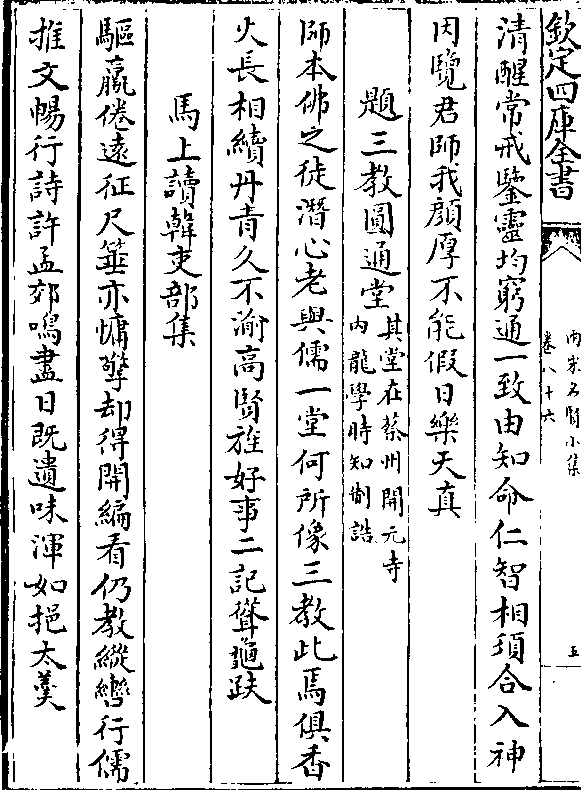 欽定四庫全書
兩宋名賢小集
卷八十六
五
清醒常戒鑒靈均窮通一致由知命仁智相須合入神
因覽君師我顔厚不能假日樂天真
題三教圓通堂
其堂在蔡州開元寺
内龍學時知制誥
師本佛之徒潛心老與儒一堂何所像三教此焉俱香
火長相續丹青久不渝高賢雅好事二記聳龜趺
馬上讀韓吏部集
驅羸倦遠征尺箠亦慵擎却得開編看仍教縱轡行儒
推文暢行詩許孟郊鳴盡日既遺味渾如挹太羹